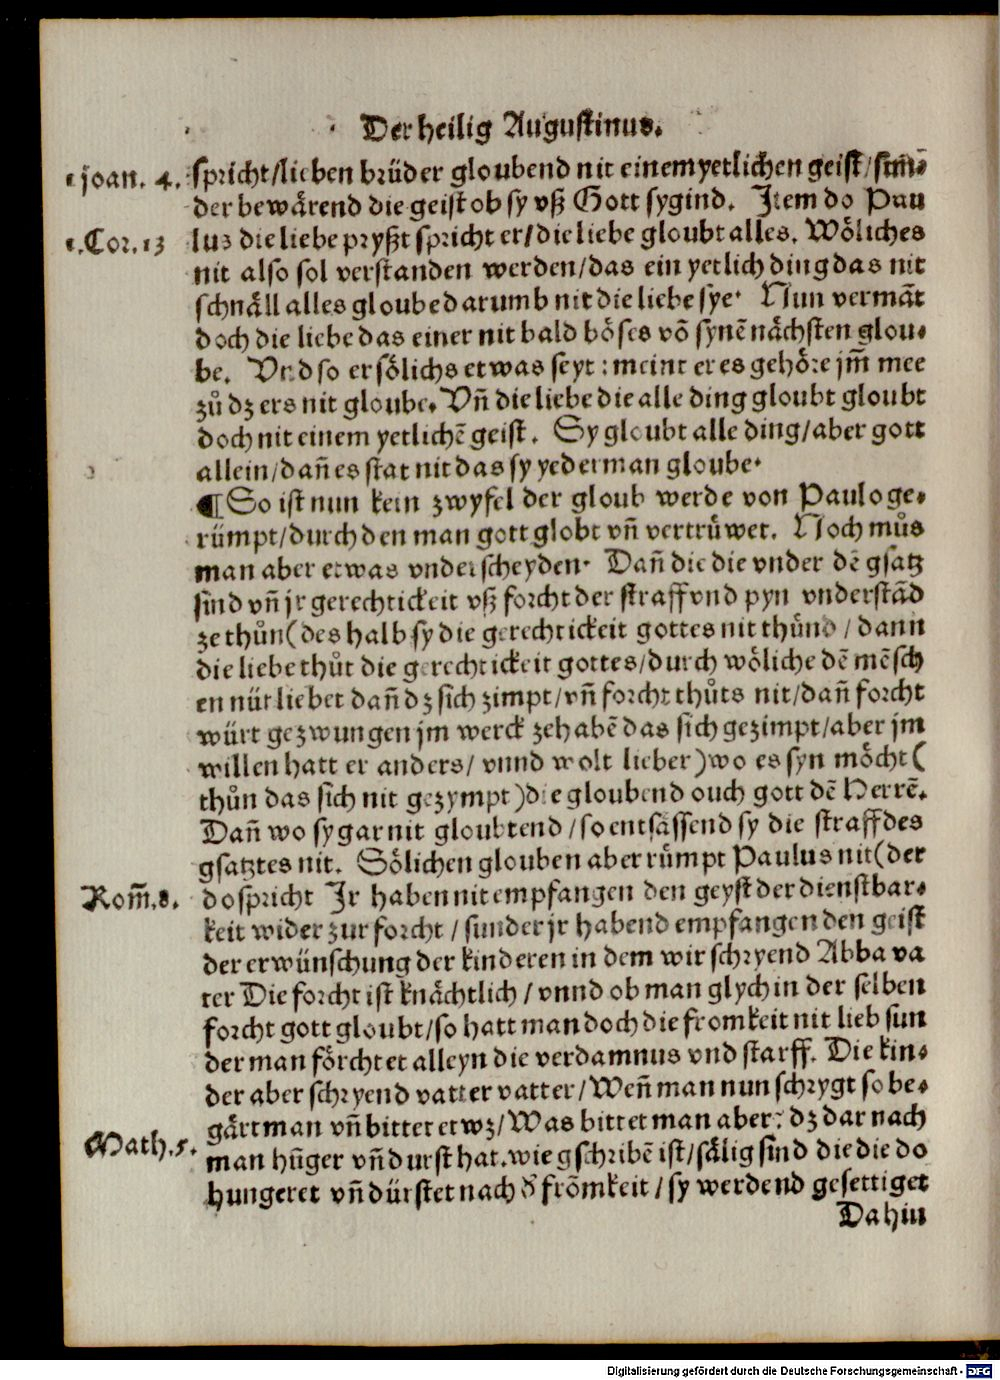 Der heilig Augustinus.
1 joan. 4. spricht/lieben brüder gloubend nit einem yetlichen geist/sun̄-
der bewärend die geist ob sy vß Gott sygind. Item do Pau
1.Cor.13 lus die liebe pryßt spricht er/die liebe gloubt alles. Wöliches
nit also sol verstanden werden/das ein yetlich ding das nit
schnäll alles gloube darumb nit die liebe sye. Nun vermāt
doch die liebe das einer nit bald böses vō synē nächsten glou-
be. Vnd so er sölichs etwas seyt: meint er es gehöre jm̄ mee
zů dz ers nit gloube. Vn̄ die liebe die alle ding gloubt gloubt
doch nit einem yetlichē geist. Sy gloubt alle ding/aber gott
allein/dan̄ es stat nit das sy yederman gloube.
¶ So ist nun kein zwyfel der gloub werde von Paulo ge-
rümpt/durch den man gott globt vn̄ vertrüwet. Noch můs
man aber etwas vnderscheyden. Dan̄ die die vnder dē gsatz
sind vn̄ jr gerechtickeit vß forcht der straff vnd pyn vnderstād
ze thůn(deshalb sy die gerechtickeit gottes nit thůnd/dann
die liebe thůt die gerechtickeit gottes/durch wöliche dē mēsch
en nüt liebet dan̄ dz sich zimpt/vn̄ forcht thůts nit/dan̄ forcht
würt gezwungen jm werck zehabē das sich gezimpt/aber jm
willen hatt er anders/vnnd wolt lieber)wo es syn möcht(
thůn das sich nit gezympt)die gloubend ouch gott dē Herrē.
Dan̄ wo sy gar nit gloubtend/so entsässend sy die straff des
gsatztes nit. Sölichen glouben aber rümpt Paulus nit(der
Rom̄.8. do spricht Ir haben nit empfangen den geyst der dienstbar-
keit wider zur forcht/sunder jr habend empfangen den geist
der erwünschung der kinderen in dem wir schryend Abba va
ter Die forcht ist knächtlich/vnnd ob man glych in der selben
forcht gott gloubt/so hatt man doch die fromkeit nit lieb sun
der man förchtet alleyn die verdamnus vnd starff. Die kin-
der aber schryend vatter vatter/Wen̄ man nun schrygt so be-
gärt man vn̄ bittet etwz/Was bittet man aber: dz dar nach
Math.5. man hūger vn̄ durst hat.wie gschribē ist/sälig sind die die do
hungeret vn̄ dürstet nach d̓ frōmkeit/sy werdend gesettiget
Dahin
Digitalisierung gefördert durch die Deutsche Forschungsgemeinschaft - DFG